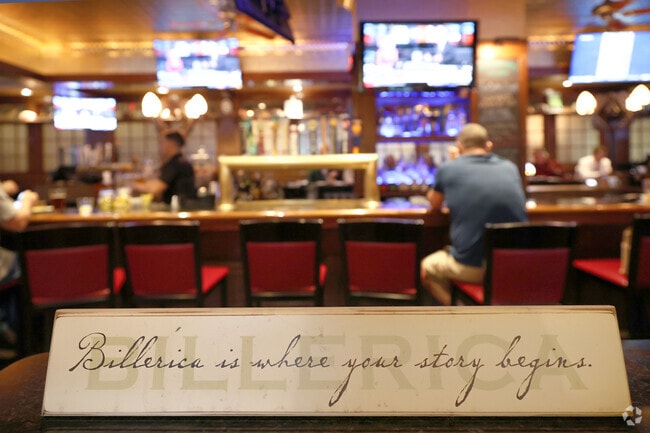 Billerica is where your story begins.
BILLERICA